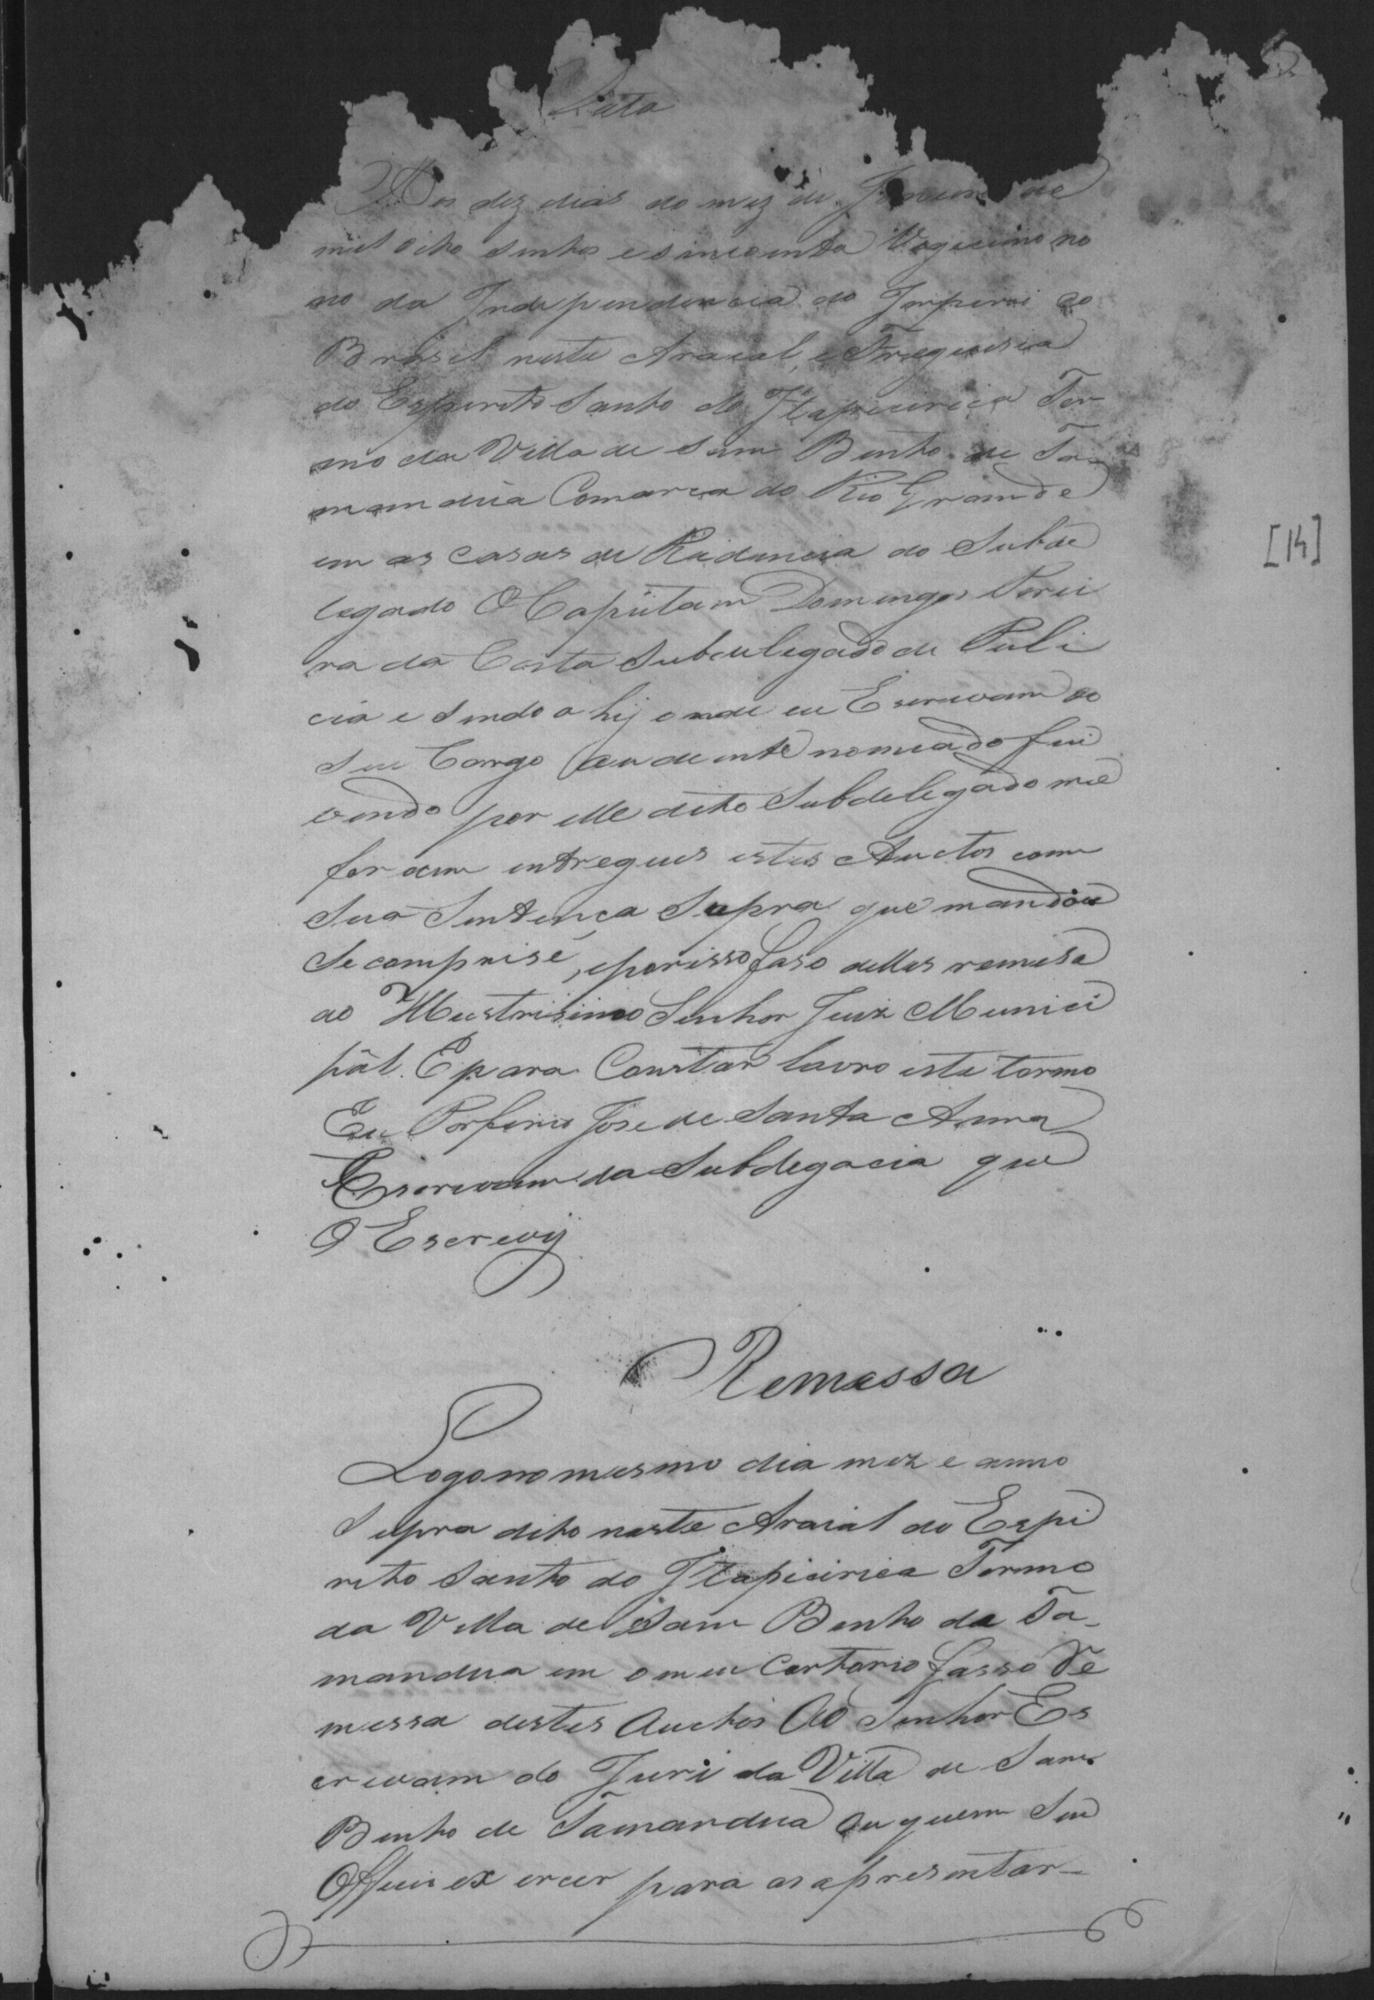 Data
Aos dez dias do mez de Janeiro de
mil oito sentos e sincoenta Vegecimo no
no da Independencia do Imperio do
Brasil neste Araial, e Freguesia
do Espirito Santo do Itapicirica Ter-
mo da Villa de Sam Bento de Ta-
mandua Comarca do Rio Grande
em as casas de Ridencia do Subde
legado O Capitam Domingos Perei
ra da Costa Subdelegado de Poli
cia e sendo a hij onde eu Escrivam do
seu Cargo au deante nomeado fui
vendo por elle dito Subdelegado me
foram entregues estes Auctos com
sua Sentença Supra que mandou
se comprise, eporisso faso delles remesa
ao Illustrisimo Senhor Juiz Munici
pal. E para Constar lavro este termo
Eu Porfirio Jose de Santa Anna
Escrivam da Subdegacia que
O Escrevij
Remessa
Logo no mesmo dia mez e anno
supra dito neste Araial do Espi
rito Santo do Itapicirica Termo
da Villa de Sam Bento de Ta-
mandua em o meu Cartorio fasso Re
messa destes Auctos Ao Senhor Es
crivam do Juri da Villa de Sam
Bento de Tamandua ou quem seu
Officio ex ercer para as apresentar-
[14]